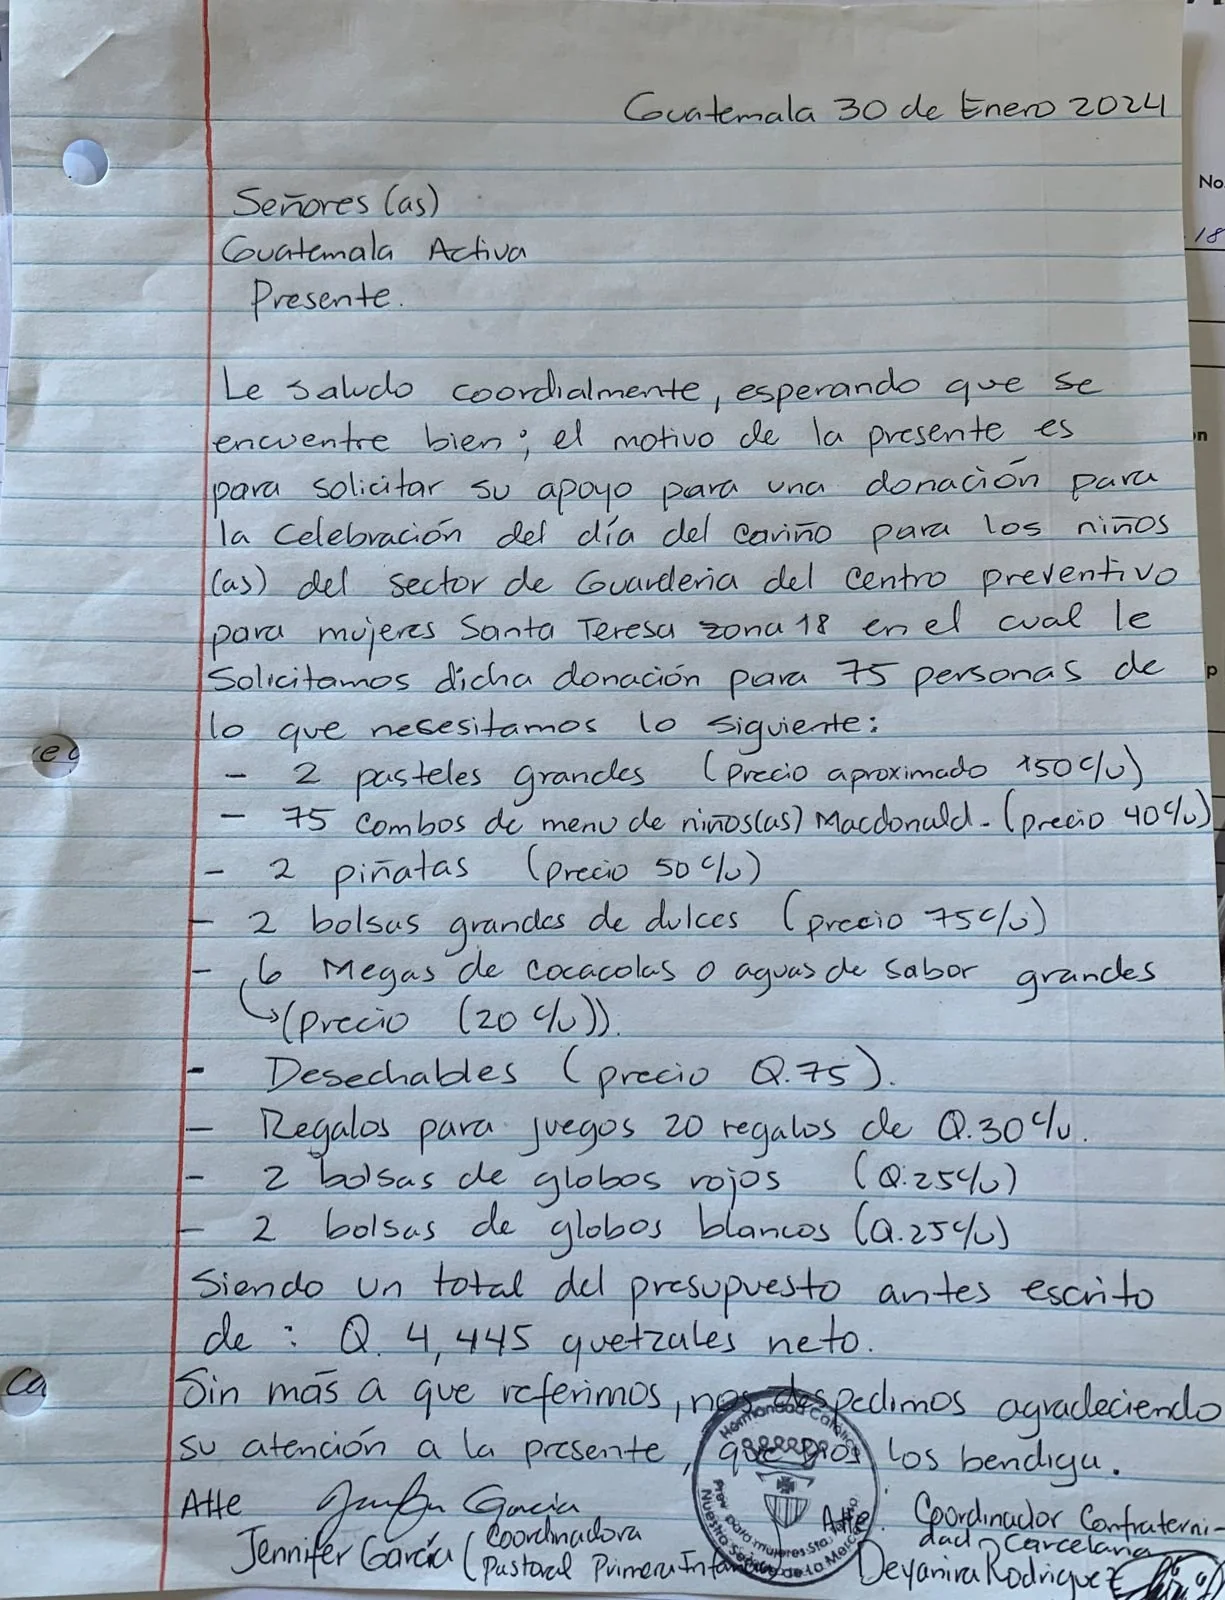 Guatemala 30 de Enero 2024
Señores (as)
Guatemala Activa
Presente.
Le saludo coordialmente, esperando que se
encuentre bien; el motivo de la presente es
para solicitar su apoyo para una donación para
la celebración del día del cariño para los niños
(as) del sector de Guarderia del Centro preventivo
para mujeres Santa Teresa zona 18 en el cual le
Solicitamos dicha donación para 75 personas de
lo que nesesitamos lo siguiente:
- 2 pasteles grandes (precio aproximado 150 c/u)
- 75 combos de menu de niños(as) Macdonald. (precio 40 c/u)
- 2 piñatas (precio 50 c/u)
- 2 bolsas grandes de dulces (precio 75 c/u)
- 6 Megas de cocacolas o aguas de sabor grandes
→(precio (20 c/u)).
- Desechables (precio Q.75).
- Regalos para juegos 20 regalos de Q.30 c/u.
- 2 bolsas de globos rojos (Q.25 c/u)
- 2 bolsas de globos blancos (Q.25 c/u)
Siendo un total del presupuesto antes escrito
de : Q. 4,445 quetzales neto.
Sin más a que referirnos, nos despedimos agradeciendo
su atención a la presente, que Dios los bendiga.
Atte
Jennifer García (Coordinadora
Pastoral Primera Infancia
Atte: Coordinador Confraterni-
dad Carcelaria
Deyanira Rodriguez
Hermandad Católica
Prev. para mujeres Sta. Teresa
Nuestra Señora de La Merced
No.
18